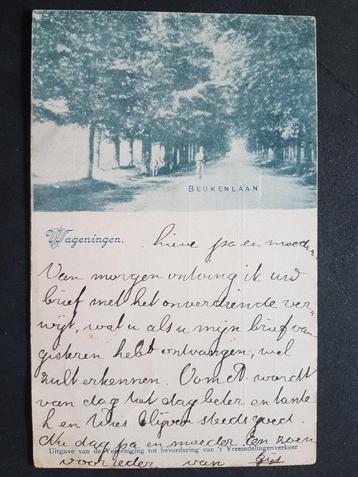 BEUKENLAAN
Wageningen.
Lieve pa en moeder
Van morgen ontving ik uw
brief met het onverdiende ver-
wijt, wat u als u mijn brief van
gisteren hebt ontvangen, wel
zult erkennen. Oom A. wordt
van dag tot dag beter en tante
en blijven steeds goed.
Nu dag pa en moeder Een zoen
Uitgave van de Vereeniging tot bevordering van 't Vreemdelingenverkeer
voor ieder van Gijs